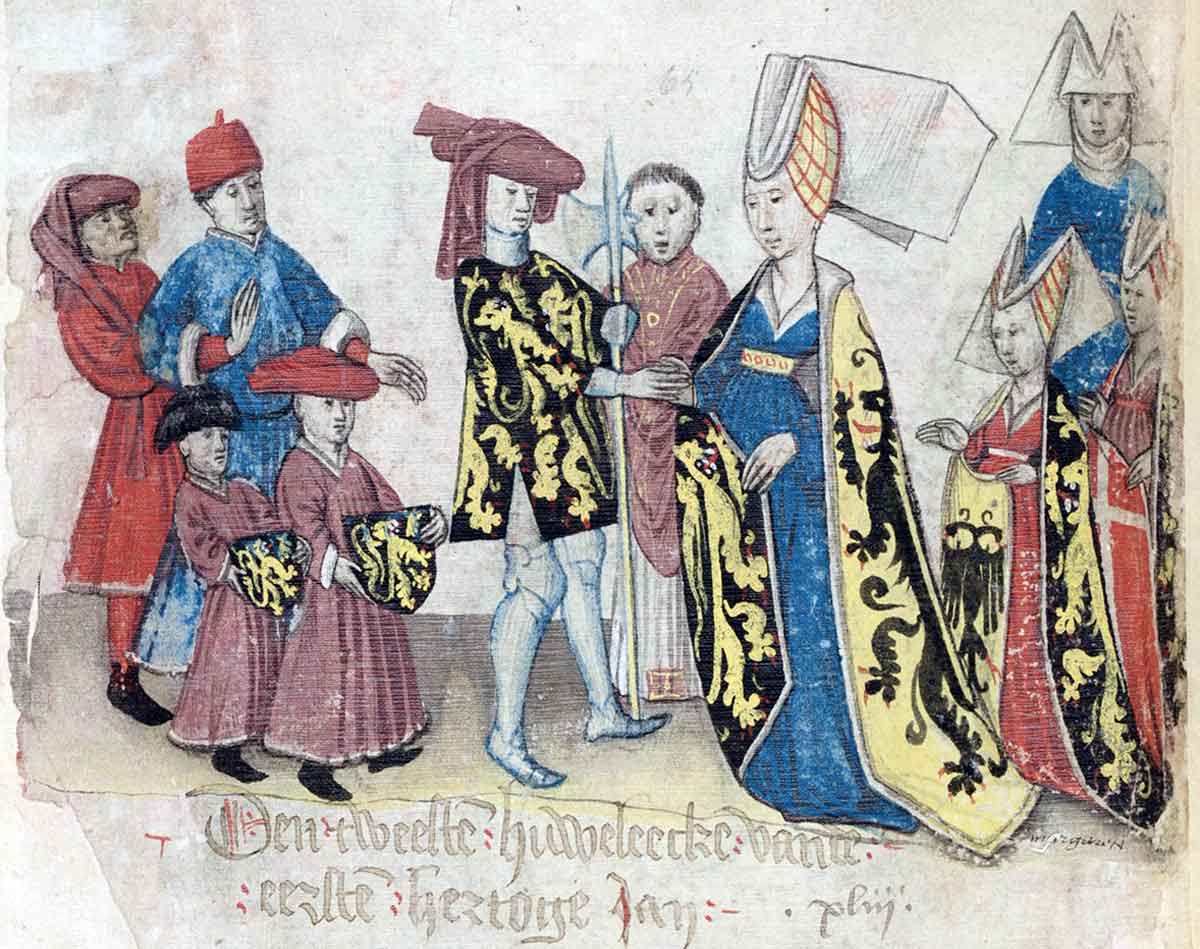 65
Den : tweestē : huweleecke : vante :
: eerstē : hertoge Jan : · xliij ·